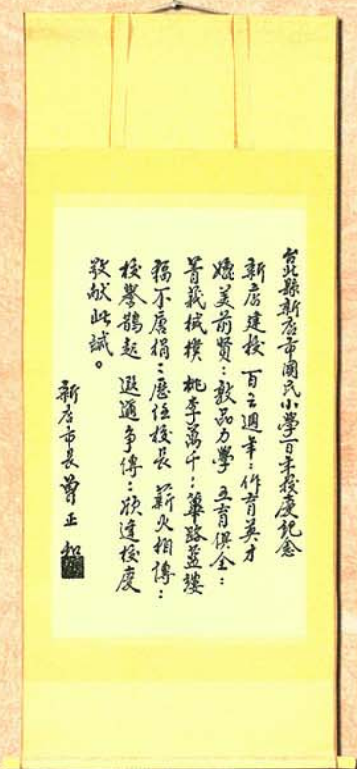 台北縣新店市國民小學百年校慶紀念
新店建校 百之週年:作育英才
媲美前賢:敦品力學 五育俱全:
菁莪棫樸 桃李萬千:篳路藍縷
福不唐捐:歷任校長 薪火相傳:
校譽鵲起 遐邇爭傳:欣逢校慶
敬献此誠。
新店市長 曾正和